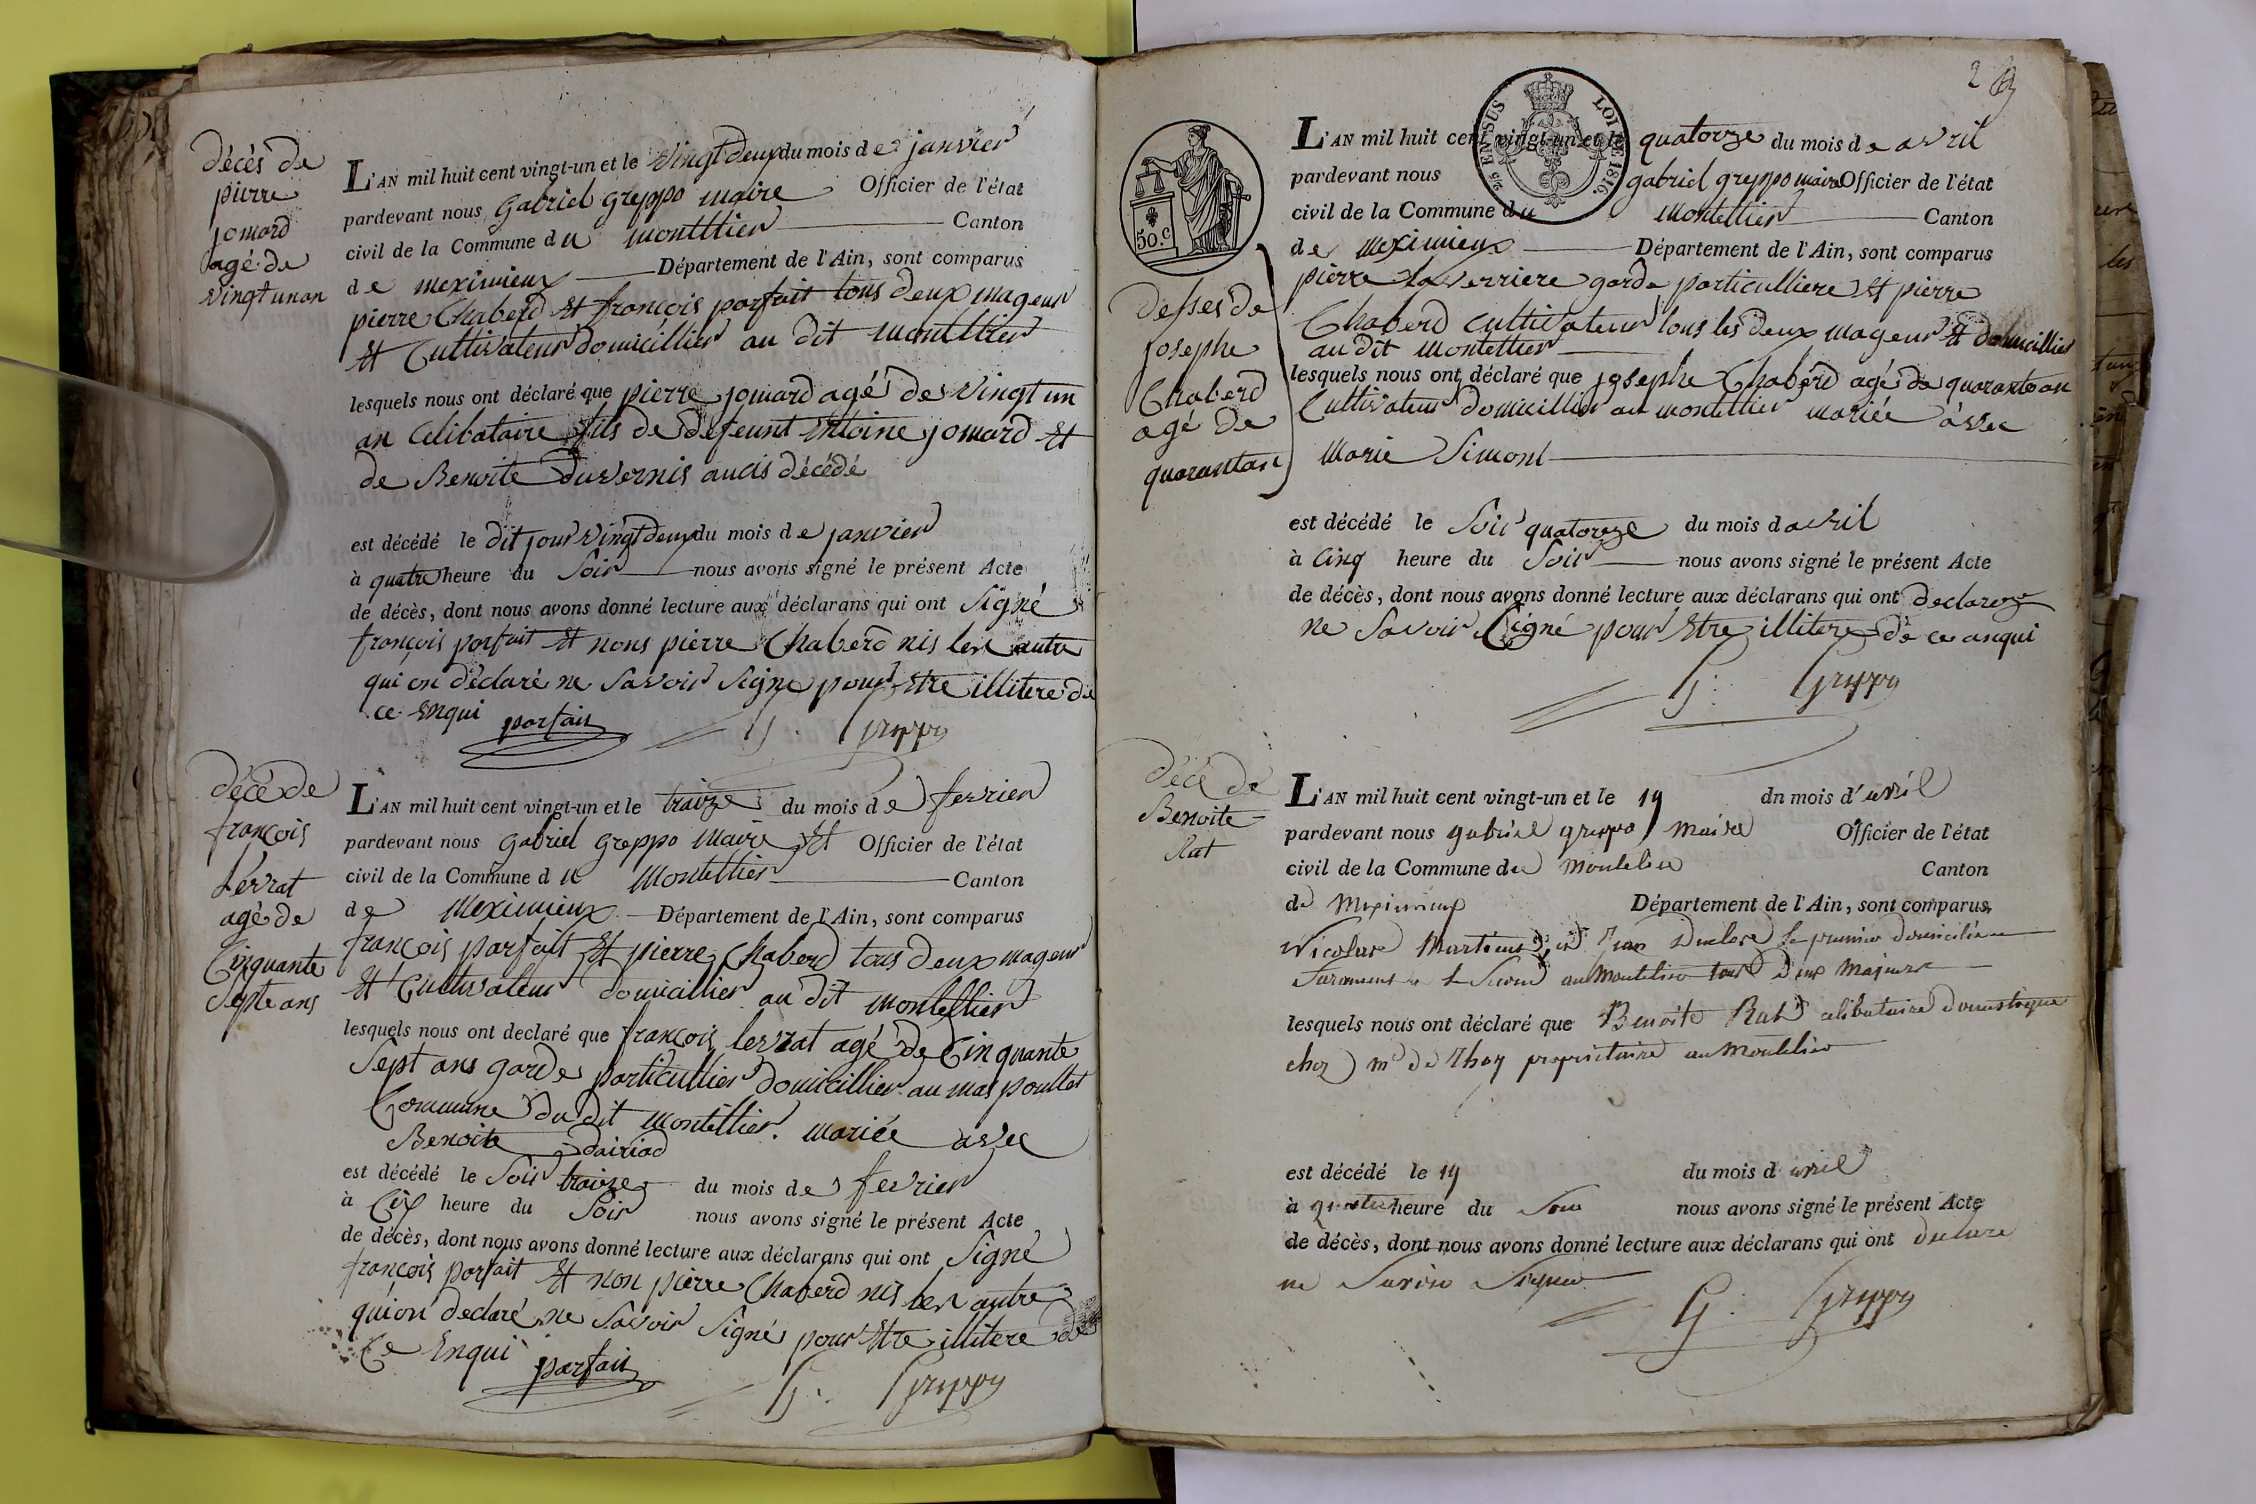 décès de
pierre
jomard
agé de
vingt un an
L'AN mil huit cent vingt-un et le vingt deux du mois de janvier
pardevant nous gabriel greppo maire Officier de l'état
civil de la Commune du montellier Canton
de meximieux Département de l'Ain, sont comparus
pierre Chaberd et françois parfait tous deux mageur
et Cultivateur domicillier au dit montellier
lesquels nous ont déclaré que pierre jomard agé de vingt un
an Celibataire fils de defeunt Entoine jomard et
de Benoite duvernis aucis décédé
est décédé le dit jour vingt deux du mois de janvier
à quatre heure du Soir nous avons signé le présent Acte
de décès, dont nous avons donné lecture aux déclarans qui ont Signé
françois parfait et nons pierre Chaberd nis len autre
qui on déclaré ne Savoir Signe pour Etre illitere de
ce Enqui parfait G. Greppo
décé de
françois
Levrat
agé de
Cinquante
Septe ans
L'AN mil huit cent vingt-un et le traize du mois de fevrier
pardevant nous gabriel greppo Maire Et Officier de l'état
civil de la Commune du Montellier Canton
de Meximieux Département de l'Ain, sont comparus
françois parfait Et pierre Chaberd tous deux mageur
Et Cultivateur domicillier au dit montellier
lesquels nous ont declaré que françois levrat agé de Cinquante
Sept ans garde particullier domicillier au mas poullet
Commune du dit montellier. mariée avec
Benoite Dairiod
est décédé le Soir traize du mois de fevrier
à Cix heure du Soir nous avons signé le présent Acte
de décès, dont nous avons donné lecture aux déclarans qui ont Signé
françois parfait Et non pierre Chaberd nis len autre
qui on declaré ne Savoir Signé pour Etre illitere de
Ce Enqui parfait G. Greppo
2
25 EN SUS LOI DE 1816.
50.c
desses de
josephe
Chaberd
agé de
quarantan
L'AN mil huit cent vingt-un et le quatorze du mois de avril
pardevant nous gabriel greppo maire Officier de l'état
civil de la Commune du Montellier Canton
de Meximieux Département de l'Ain, sont comparus
pierre laverriere garde particulliere Et pierre
Chaberd Cultivateur tous les deux mageur Et domicillier
au dit Montellier
lesquels nous ont déclaré que josephe Chaberd agé de quarante an
Cultivateur domicillier au montellier mariée avec
Marie Simont
est décédé le Soir quatorze du mois d avril
à Cinq heure du Soir nous avons signé le présent Acte
de décès, dont nous avons donné lecture aux déclarans qui ont declarez
ne Savoir Cigné pour Etre illitere de ce anqui
G. Greppo
décé de
Benoite
Rat
L'AN mil huit cent vingt-un et le 19 du mois d'avril
pardevant nous gabriel greppo Maire Officier de l'état
civil de la Commune du Montelier Canton
de Meximieux Département de l'Ain, sont comparus
Nicolas Martin et Jean Duclos le premier domicilié a
le Second au Montelier tous deux Majeurs
lesquels nous ont déclaré que Benoite Rat celibataire domestique
chez mr de Thoy propriétaire au Montelier
est décédé le 19 du mois d avril
à quatre heure du Soir nous avons signé le présent Acte
de décès, dont nous avons donné lecture aux déclarans qui ont declaré
ne Savoir Signer
G. Greppo